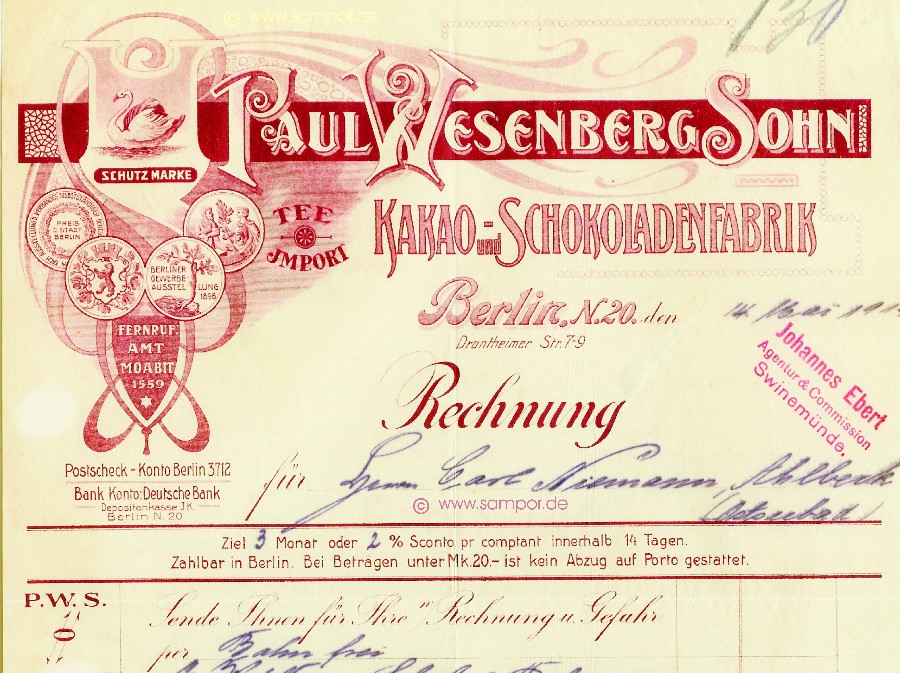 © www.sampor.de
130
PAUL WESENBERG SOHN
SCHUTZMARKE
TEE
JMPORT
KAKAO- und SCHOKOLADENFABRIK
PREIS
D. STADT
BERLIN
BERLINER
GEWERBE-
AUSSTELLUNG
1896
FERNRUF.
AMT
MOABIT
1559
Berlin, N.20. den 14. Mai 191
Drontheimer Str. 7-9
Johannes Ebert
Agentur & Commission
Swinemünde.
Rechnung
Postscheck - Konto Berlin 3712
Bank Konto: Deutsche Bank
Depositenkasse J.K.
Berlin N. 20
für Herrn Carl Niemann, Ahlbeck
(Ostseebad)
© www.sampor.de
Ziel 3 Monat oder 2 % Sconto pr comptant innerhalb 14 Tagen.
Zahlbar in Berlin. Bei Betragen unter Mk. 20.- ist kein Abzug auf Porto gestattet.
P.W.S.
10
Sende Ihnen für Ihre w/ Rechnung u. Gefahr
per Bahn frei